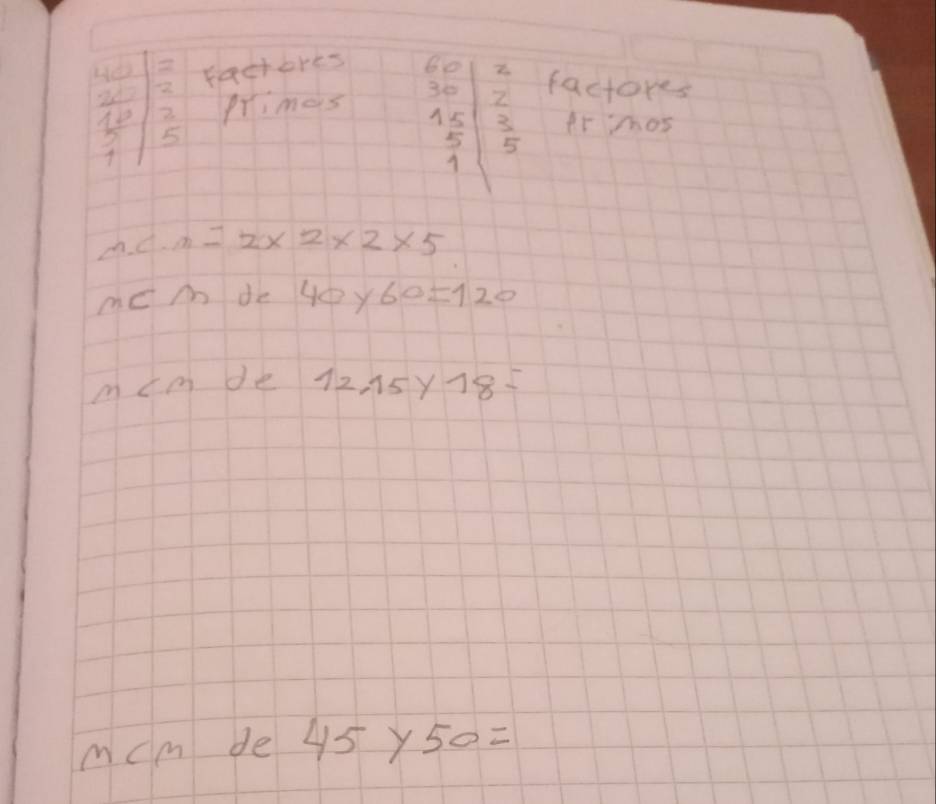 40 | 2 factores
20 | 2 primos
10 | 2
5 | 5
1 |
60 | 2 factores
30 | 2
15 | 3 primos
5 | 5
1 |
m.c.m = 2 x 2 x 2 x 5
mcm de 40 y 60 = 120
mcm de 12,15 y 18 =
mcm de 45 y 50 =